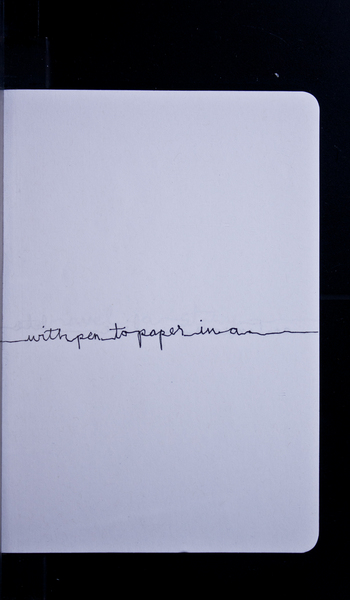 with pen to paper in a